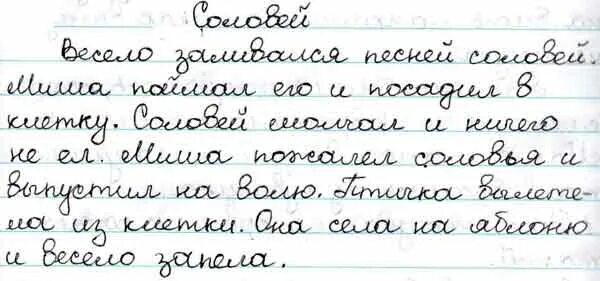 Соловей
Весело заливался песней соловей.
Миша поймал его и посадил в
клетку. Соловей молчал и ничего
не ел. Миша пожалел соловья и
выпустил на волю. Птичка вылете-
ла из клетки. Она села на яблоню
и весело запела.